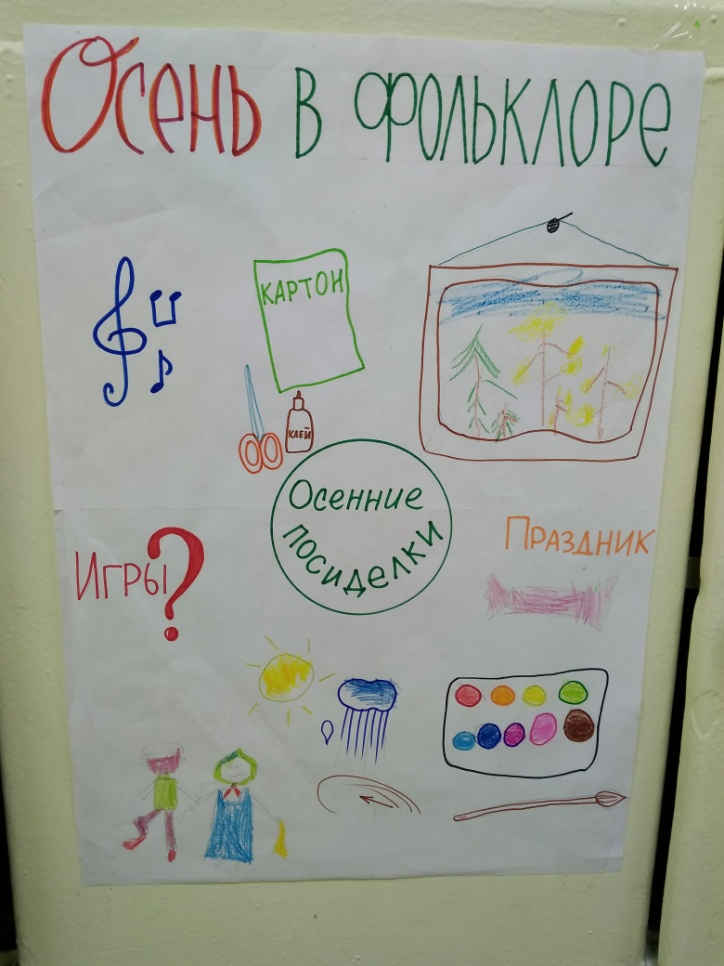 Осень в фольклоре
КАРТОН
КЛЕЙ
Осенние
посиделки
Праздник
Игры?